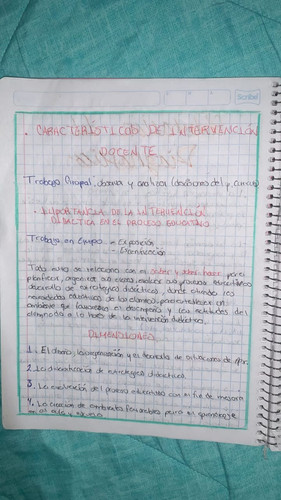 Scribe
. CARACTERISTICAS DE INTERVENCIÓN
DOCENTE
Trabajo Grupal: observar y analizar
. IMPORTANCIA DE LA INTERVENCIÓN
DIDACTICA EN EL PROCESO EDUCATIVO
Trabajo en Equipo → Exposición
Todo esto se relaciona con el saber y saber hacer para
planificar, organizar sus clases,
desarrollo de estrategias didácticas, donde atiendan las
necesidades de los alumnos, para establecer un
ambiente que favorezca el desempeño y las actitudes del
alumnado a lo largo de la intervención didáctica.
DIMENSIONES
1. El diseño, la organización y el desarrollo de situaciones de apr.
2. La diversificación de estrategias didácticas
3. La evaluación del proceso educativo con el fin de mejora
4. La creación de ambientes favorables para el aprendizaje
en el aula y escuela